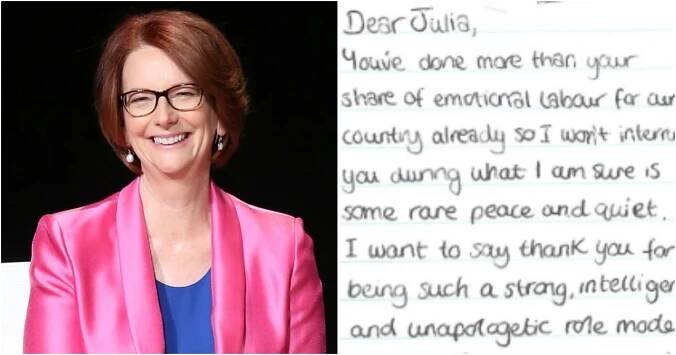 Dear Julia,
You've done more than your
share of emotional labour for our
country already so I won't
you during what I am sure is
some rare peace and quiet.
I want to say thank you for
being such a strong,
and unapologetic role